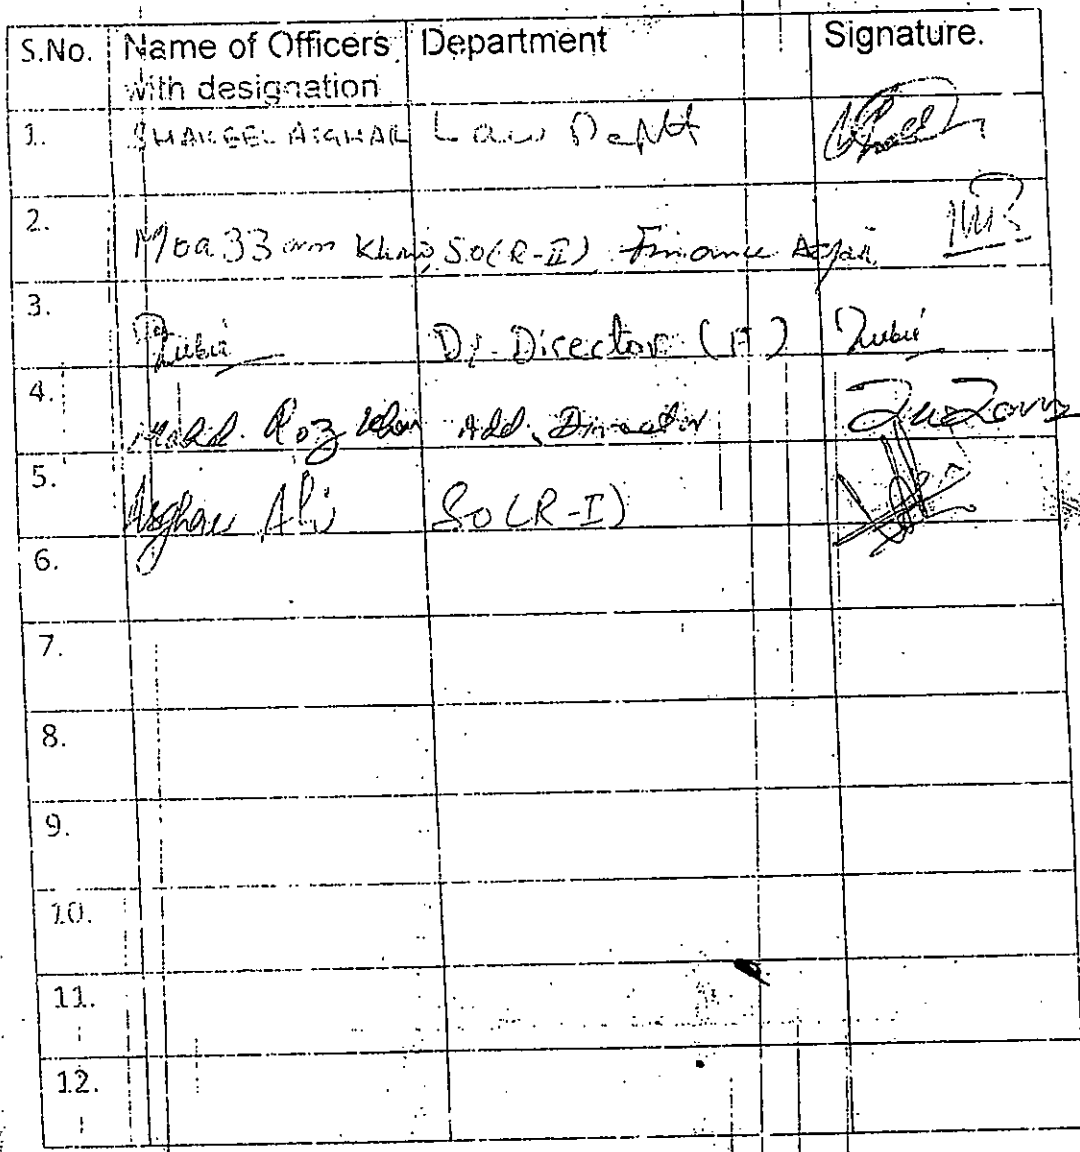 S.No. Name of Officers Department Signature.
with designation
1. SHAKEEL ASGHAR Law Deptt
2.
Moazzam Khan, SO(R-II) Finance
3.
Zubi Dy. Director (A) Zubi
4.
Mohd. Roz Khan Add. Director
5.
Asghar Ali SO (R-I)
6.
7.
8.
9.
10.
11.
12.